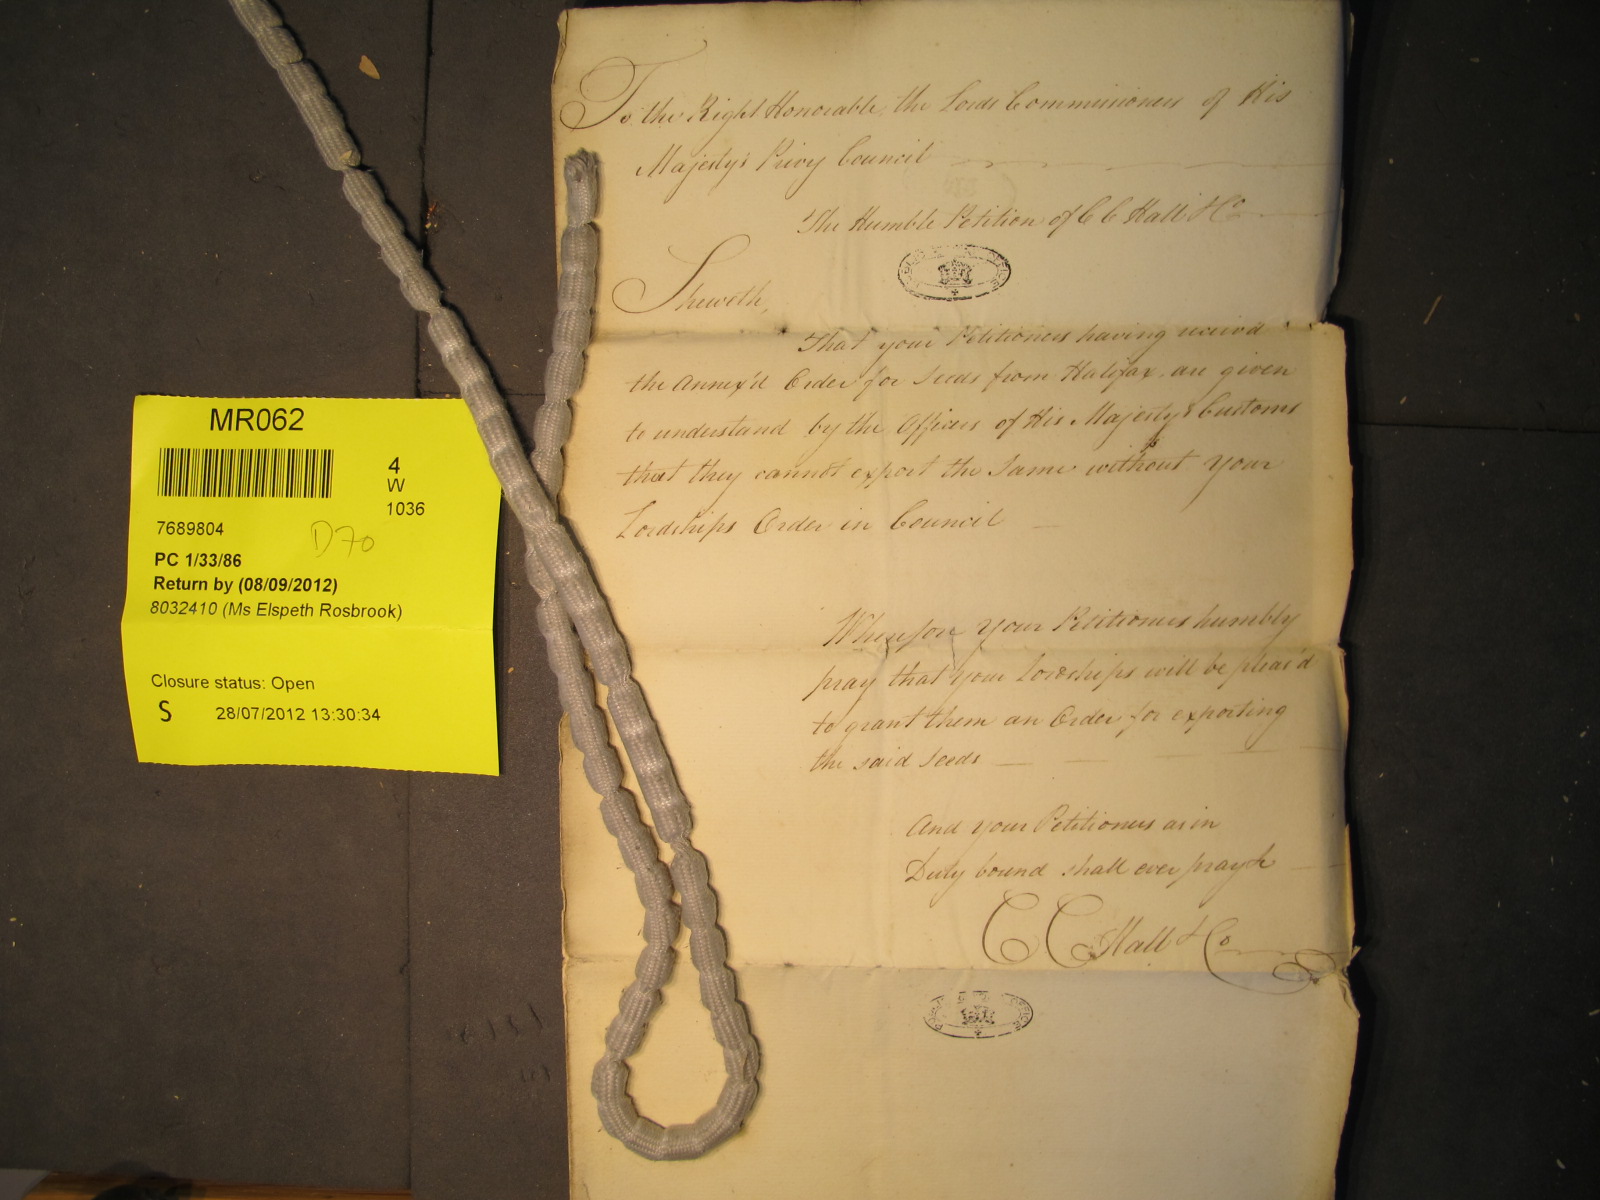 MR062
4
W
1036
7689804
D70
PC 1/33/86
Return by (08/09/2012)
8032410 (Ms Elspeth Rosbrook)
Closure status: Open
S 28/07/2012 13:30:34
To the Right Honorable the Lords Commissioners of His
Majesty's Privy Council
The Humble Petition of C C Hall & Co
Sheweth,
That your Petitioners having receiv'd
the Annex'd Order for Seeds from Halifax, are given
to understand by the Officers of His Majesty's Customs
that they cannot export the same without Your
Lordships Order in Council
Wherefore Your Petitioners humbly
pray that your Lordships will be pleas'd
to grant them an Order for exporting
the said Seeds
And your Petitioners as in
Duty bound shall ever pray &c
C C Hall & Co